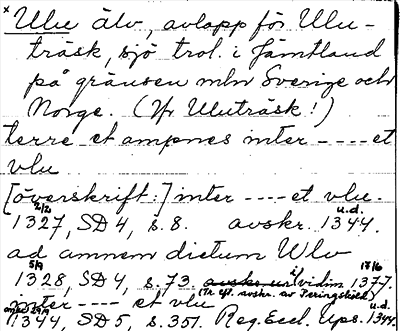 x Ulu älv, avlopp för Ulu-
träsk, sjö trol. i Jämtland
på gränsen mln Sverige och
Norge. (Jfr Uluträsk!)
terre et ampnes inter ---- et
vlu
[överskrift:] inter ---- et vlu.
1327 2/2, SD 4, s. 8. avskr. 1344. u.d.
ad amnem dictum Wlv
1328 5/9, SD 4, s. 73. i vidim. 1377. 17/6
(Tr. eft. avskr. av Peringskiöld)
inter ---- et vlu
1344 29/9, SD 5, s. 351. Reg. Eccl. Ups. 1344. u.d.